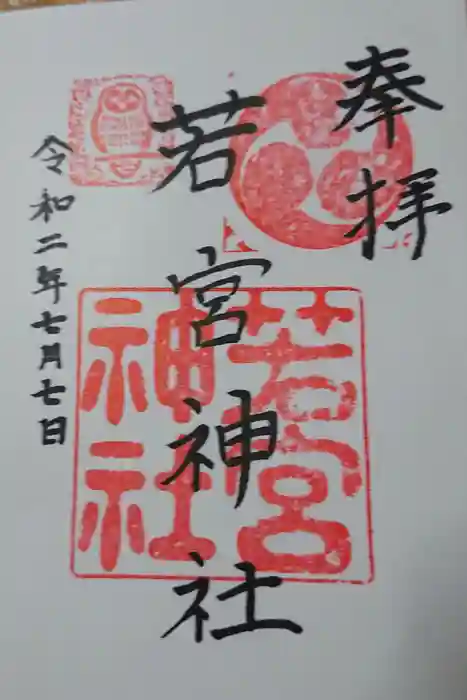 奉拝
若宮神社
若宮
神社
令和二年七月七日